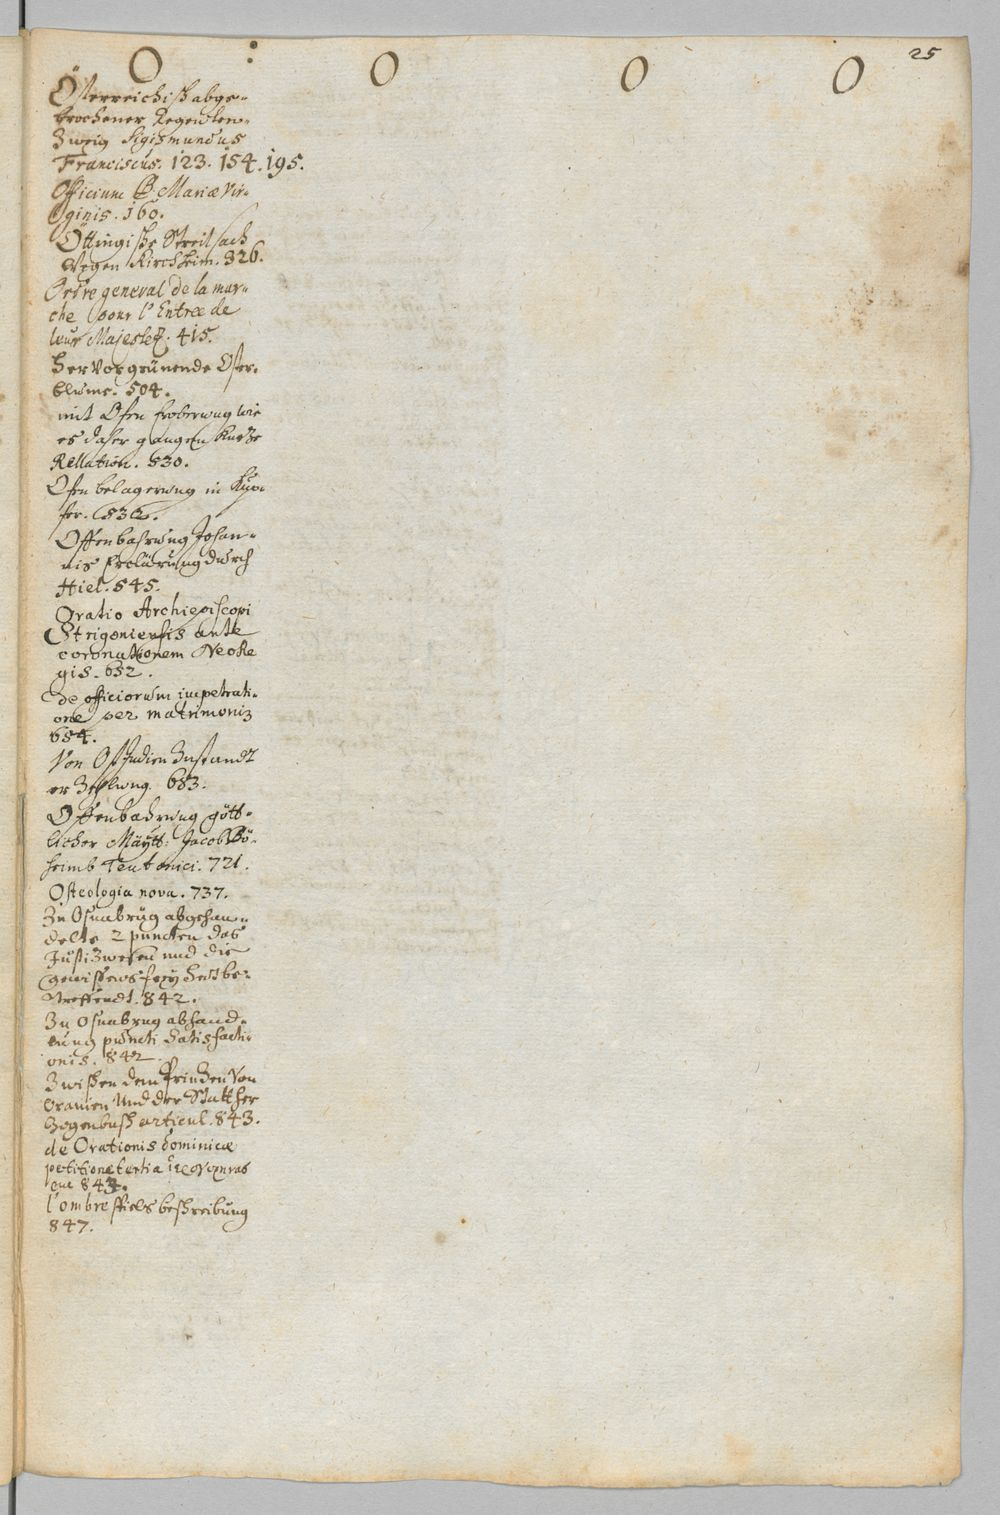 25
O O O O
Österreichisch abge-
brochener Regenten-
Zweig Sigismundus
Franciscus. 123. 154. 195.
Officium B. Mariæ Vir-
ginis. 160.
Öttingische Streitsach
wegen Kirchheim. 326.
Ordre general de la mar-
che pour l'Entree de
leur Majestez. 415.
hervorgrünende Oster-
blume. 504.
mit Ofen Eroberung wie
es daher gangen kurze
Rellation. 530.
Ofen belagerung in Kup-
fer. 532.
Offenbahrung Johan-
nis Erclärung durch
Hiel. 545.
Oratio Archiepiscopi
Strigoniensis ante
coronationem Neo Re
gis. 652.
de officiorum impetrati-
one per matrimonia
654.
Von Ost Indien Zustandt
erZehlung. 683.
Offenbahrung gött-
licher Mäytt: Jacob Bö-
heimb Teutonici. 721.
Osteologia nova. 737.
Zu Osnabrüg abgehan-
delte 2 puncten das
JustiZwesen und die
gewissens freyheit be-
treffendt. 842.
Zu Osnabrug abhand-
lung puncti Satisfacti-
onis. 842.
Zwischen dem Prinzen Von
Oranien Und der Statt Her
Zogenbusch articul. 843.
de Orationis Dominicæ
petitione tertia
844.
l'ombre spiels beschreibung
847.